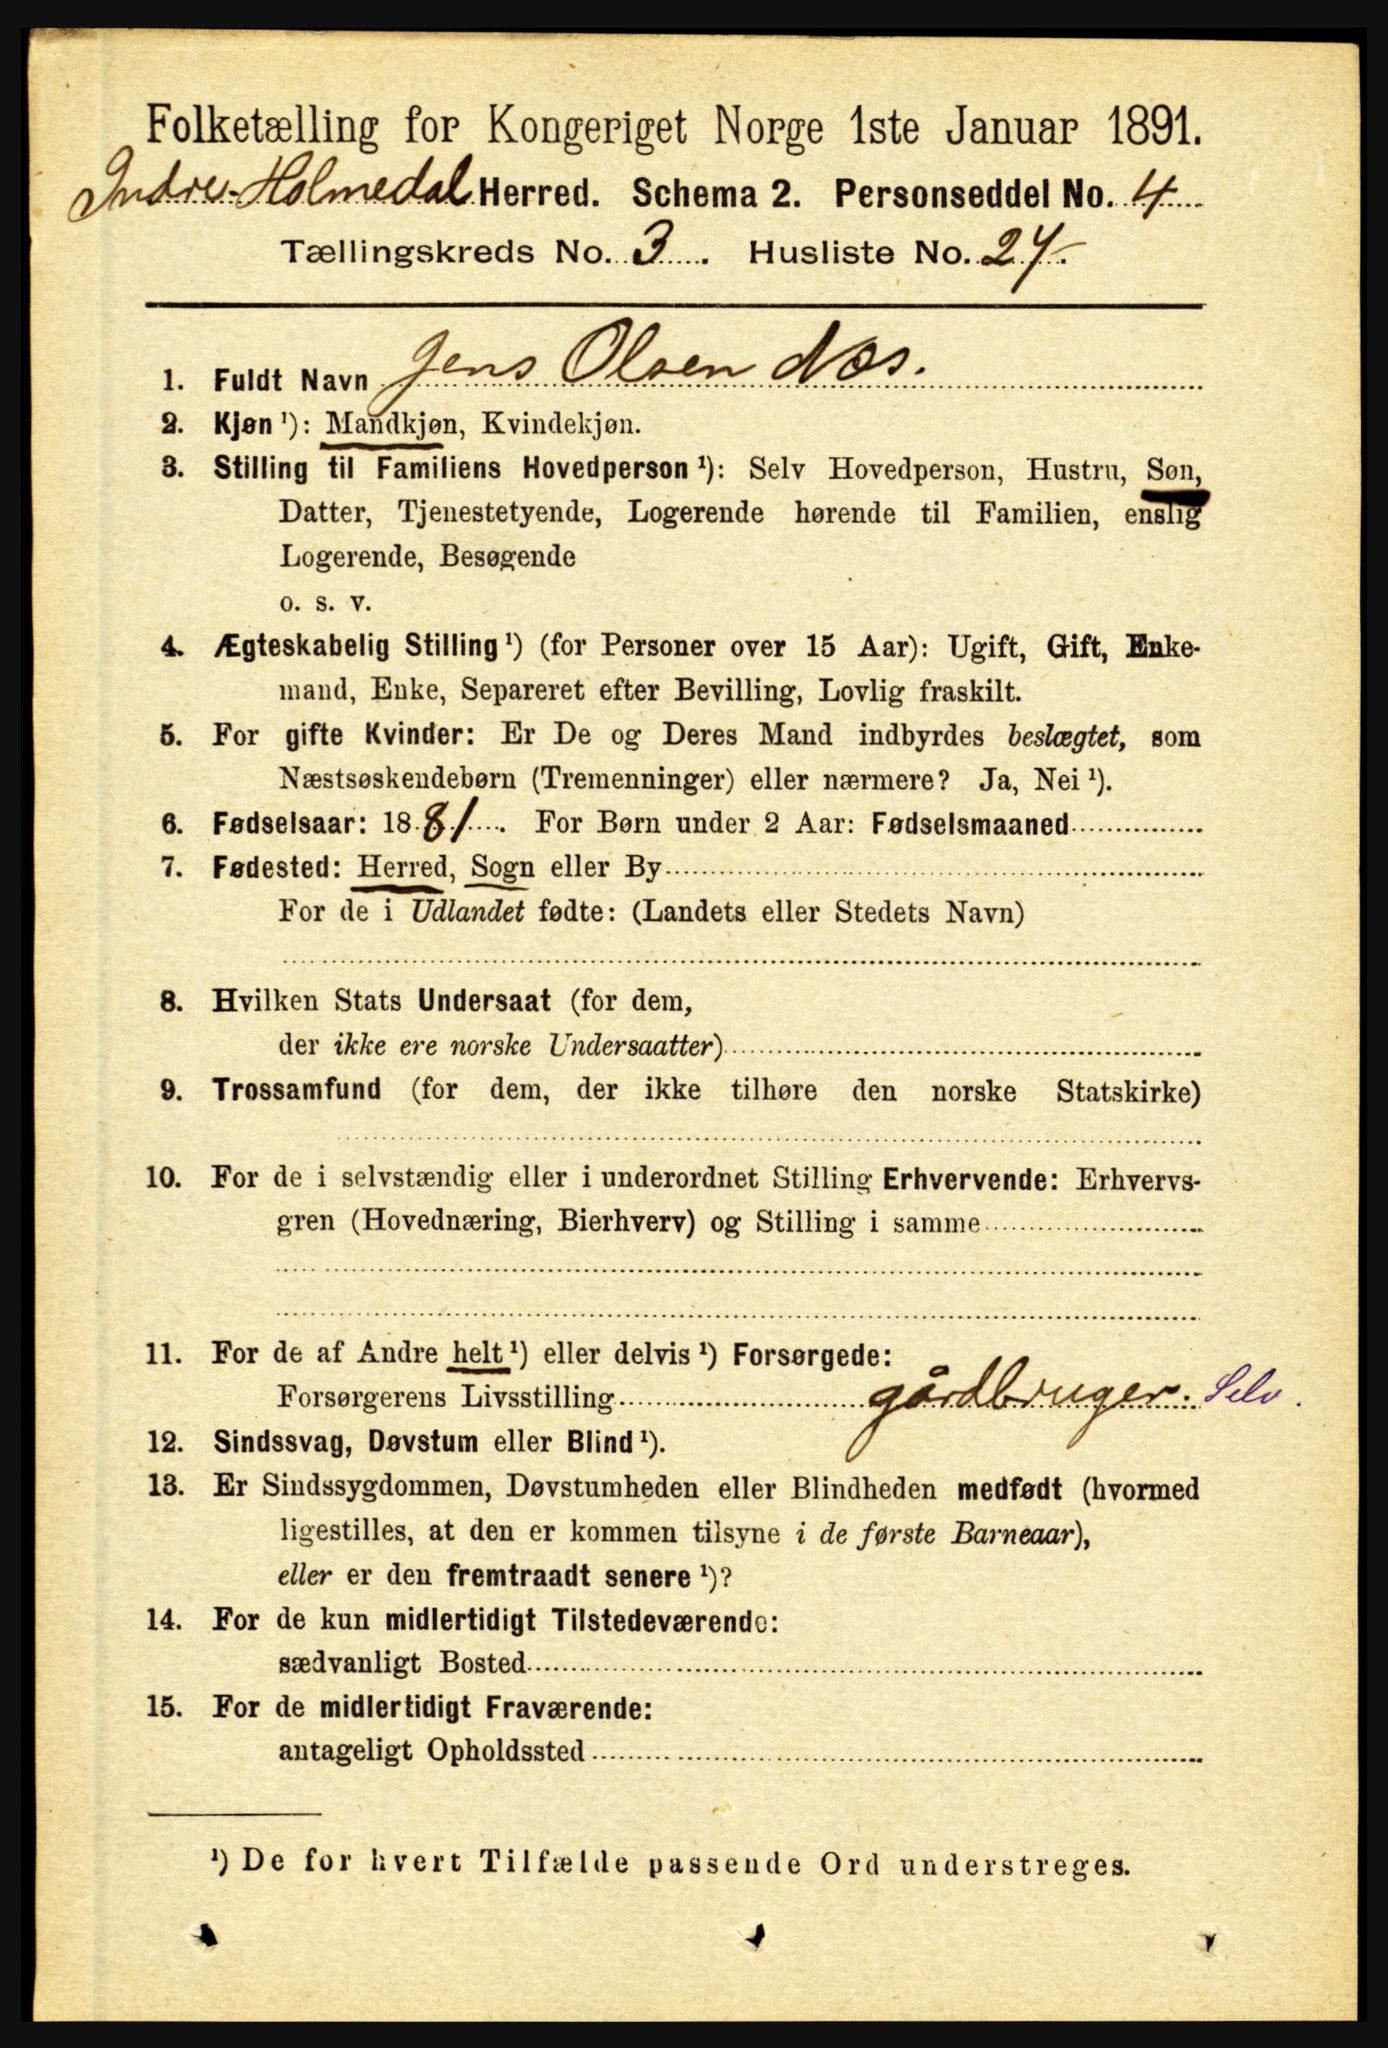 Folketælling for Kongeriget Norge 1ste Januar 1891.
Indre Holmedal Herred. Schema 2. Personseddel No. 4
Tællingskreds No. 3. Husliste No. 24.
1. Fuldt Navn Jens Olsen Næs.
2. Kjøn ¹): Mandkjøn, Kvindekjøn.
3. Stilling til Familiens Hovedperson ¹): Selv Hovedperson, Hustru, Søn,
Datter, Tjenestetyende, Logerende hørende til Familien, enslig
Logerende, Besøgende
o. s. v.
4. Ægteskabelig Stilling ¹) (for Personer over 15 Aar): Ugift, Gift, Enke-
mand, Enke, Separeret efter Bevilling, Lovlig fraskilt.
5. For gifte Kvinder: Er De og Deres Mand indbyrdes beslægtet, som
Næstsøskendebørn (Tremenninger) eller nærmere? Ja, Nei ¹).
6. Fødselsaar: 1881. For Børn under 2 Aar: Fødselsmaaned
7. Fødested: Herred, Sogn eller By
For de i Udlandet fødte: (Landets eller Stedets Navn)
8. Hvilken Stats Undersaat (for dem,
der ikke ere norske Undersaatter)
9. Trossamfund (for dem, der ikke tilhøre den norske Statskirke)
10. For de i selvstændig eller i underordnet Stilling Erhvervende: Erhvervs-
gren (Hovednæring, Bierhverv) og Stilling i samme
11. For de af Andre helt ¹) eller delvis ¹) Forsørgede:
Forsørgerens Livsstilling gårdbruger. Selv.
12. Sindssvag, Døvstum eller Blind ¹).
13. Er Sindssygdommen, Døvstumheden eller Blindheden medfødt (hvormed
ligestilles, at den er kommen tilsyne i de første Barneaar),
eller er den fremtraadt senere ¹)?
14. For de kun midlertidigt Tilstedeværende:
sædvanligt Bosted
15. For de midlertidigt Fraværende:
antageligt Opholdssted
¹) De for hvert Tilfælde passende Ord understreges.